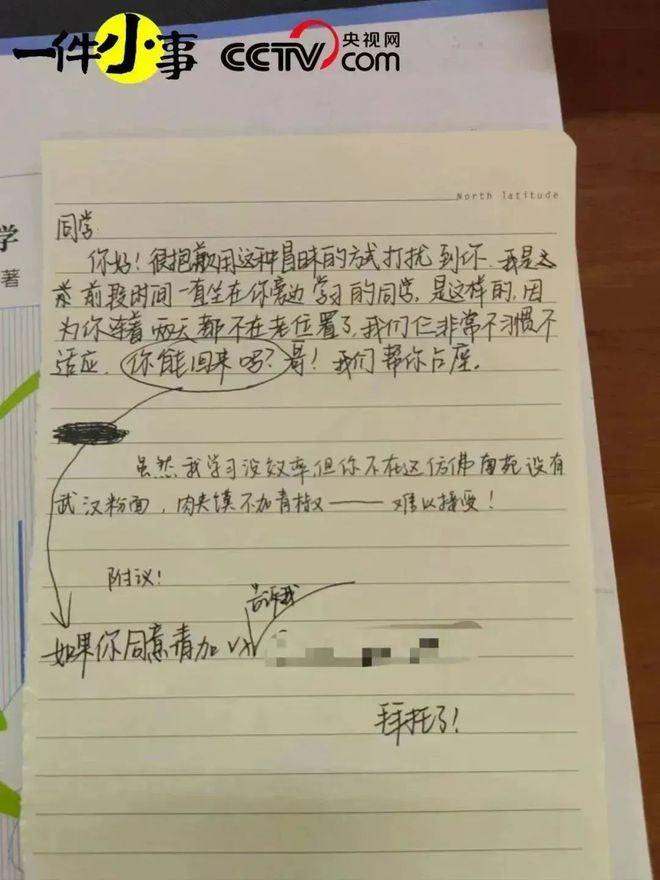 一件小事 CCTV.com 央视网
学
著
North latitude
同学:
你好！很抱歉用这种冒昧的方式打扰到你，我是
前段时间一直坐在你旁边学习的同学，是这样的，因
为你连着两天都不在老位置了，我们仨非常不习惯不
适应，你能回来吗？哥！我们帮你占座。
虽然我学习没效率但你不在这仿佛南苑没有
武汉粉面，肉夹馍不加青椒——难以接受！
附议！
告诉我
如果你同意请加vx
拜托了！